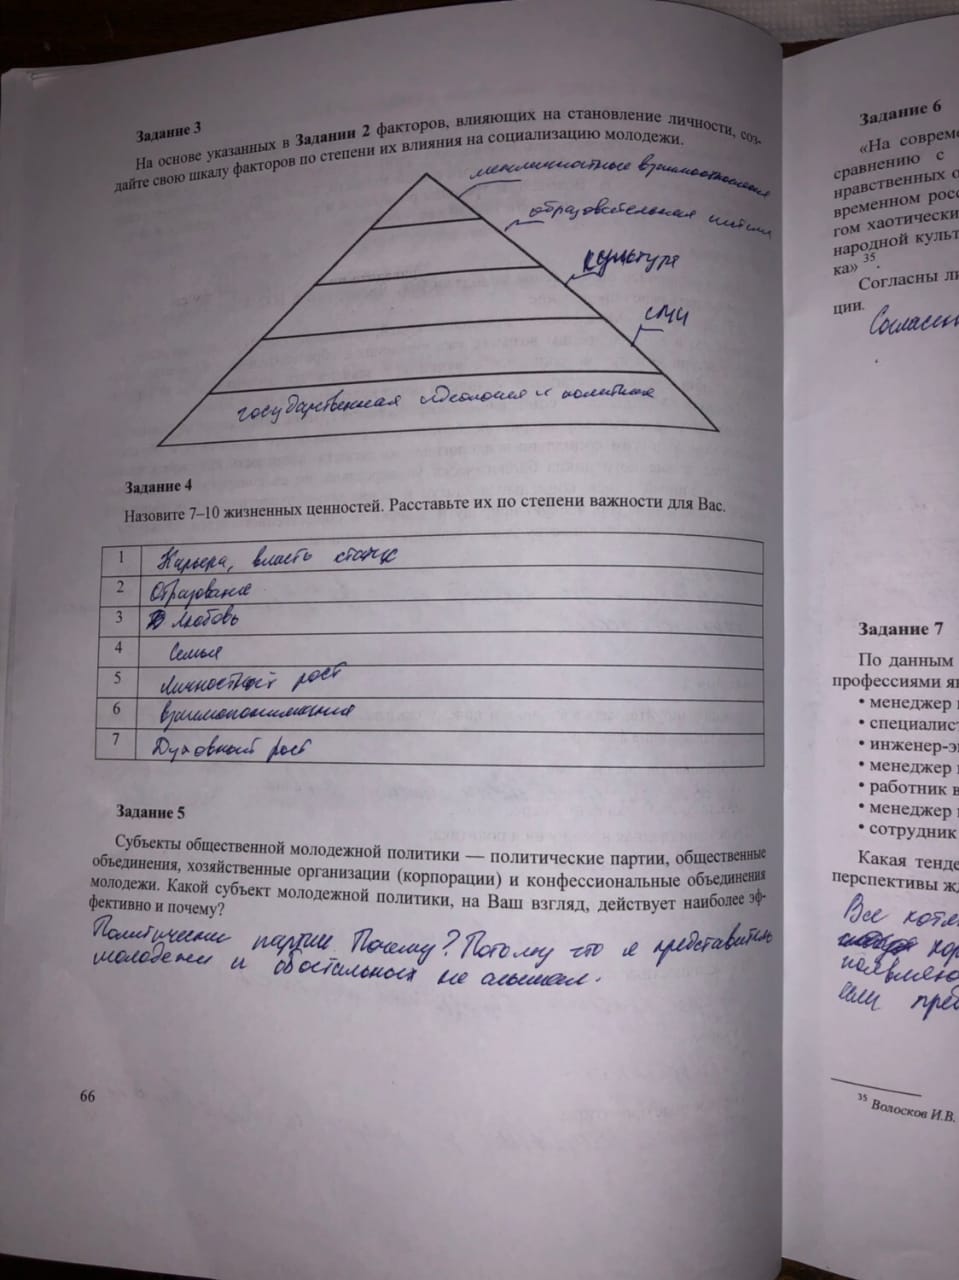 Задание 3
На основе указанных в Задании 2 факторов, влияющих на становление личности, соз-
дайте свою шкалу факторов по степени их влияния на социализацию молодежи.
межличностные взаимоотношения
образовательная
культура
СМИ
государственная идеология и политика
Задание 4
Назовите 7–10 жизненных ценностей. Расставьте их по степени важности для Вас.
1 Карьера, власть статус
2 Образование
3 Любовь
4 Семья
5 Личностный рост
6 взаимопонимание
7 Духовный рост
Задание 5
Субъекты общественной молодежной политики — политические партии, общественные
объединения, хозяйственные организации (корпорации) и конфессиональные объединения
молодежи. Какой субъект молодежной политики, на Ваш взгляд, действует наиболее эф-
фективно и почему?
Политические партии. Почему? Потому что я представитель
молодежи и об остальных не слышал.
66
Задание 6
«На совреме
сравнению с
нравственных о
временном росс
гом хаотически
народной культ
ка» 35.
Согласны ли
ции.
Согласен
Задание 7
По данным
профессиями яв
• менеджер
• специалист
• инженер-э
• менеджер
• работник в
• менеджер
• сотрудник
Какая тенде
перспективы жд
Все хотя
появляю
если пред
35 Волосков И.В.